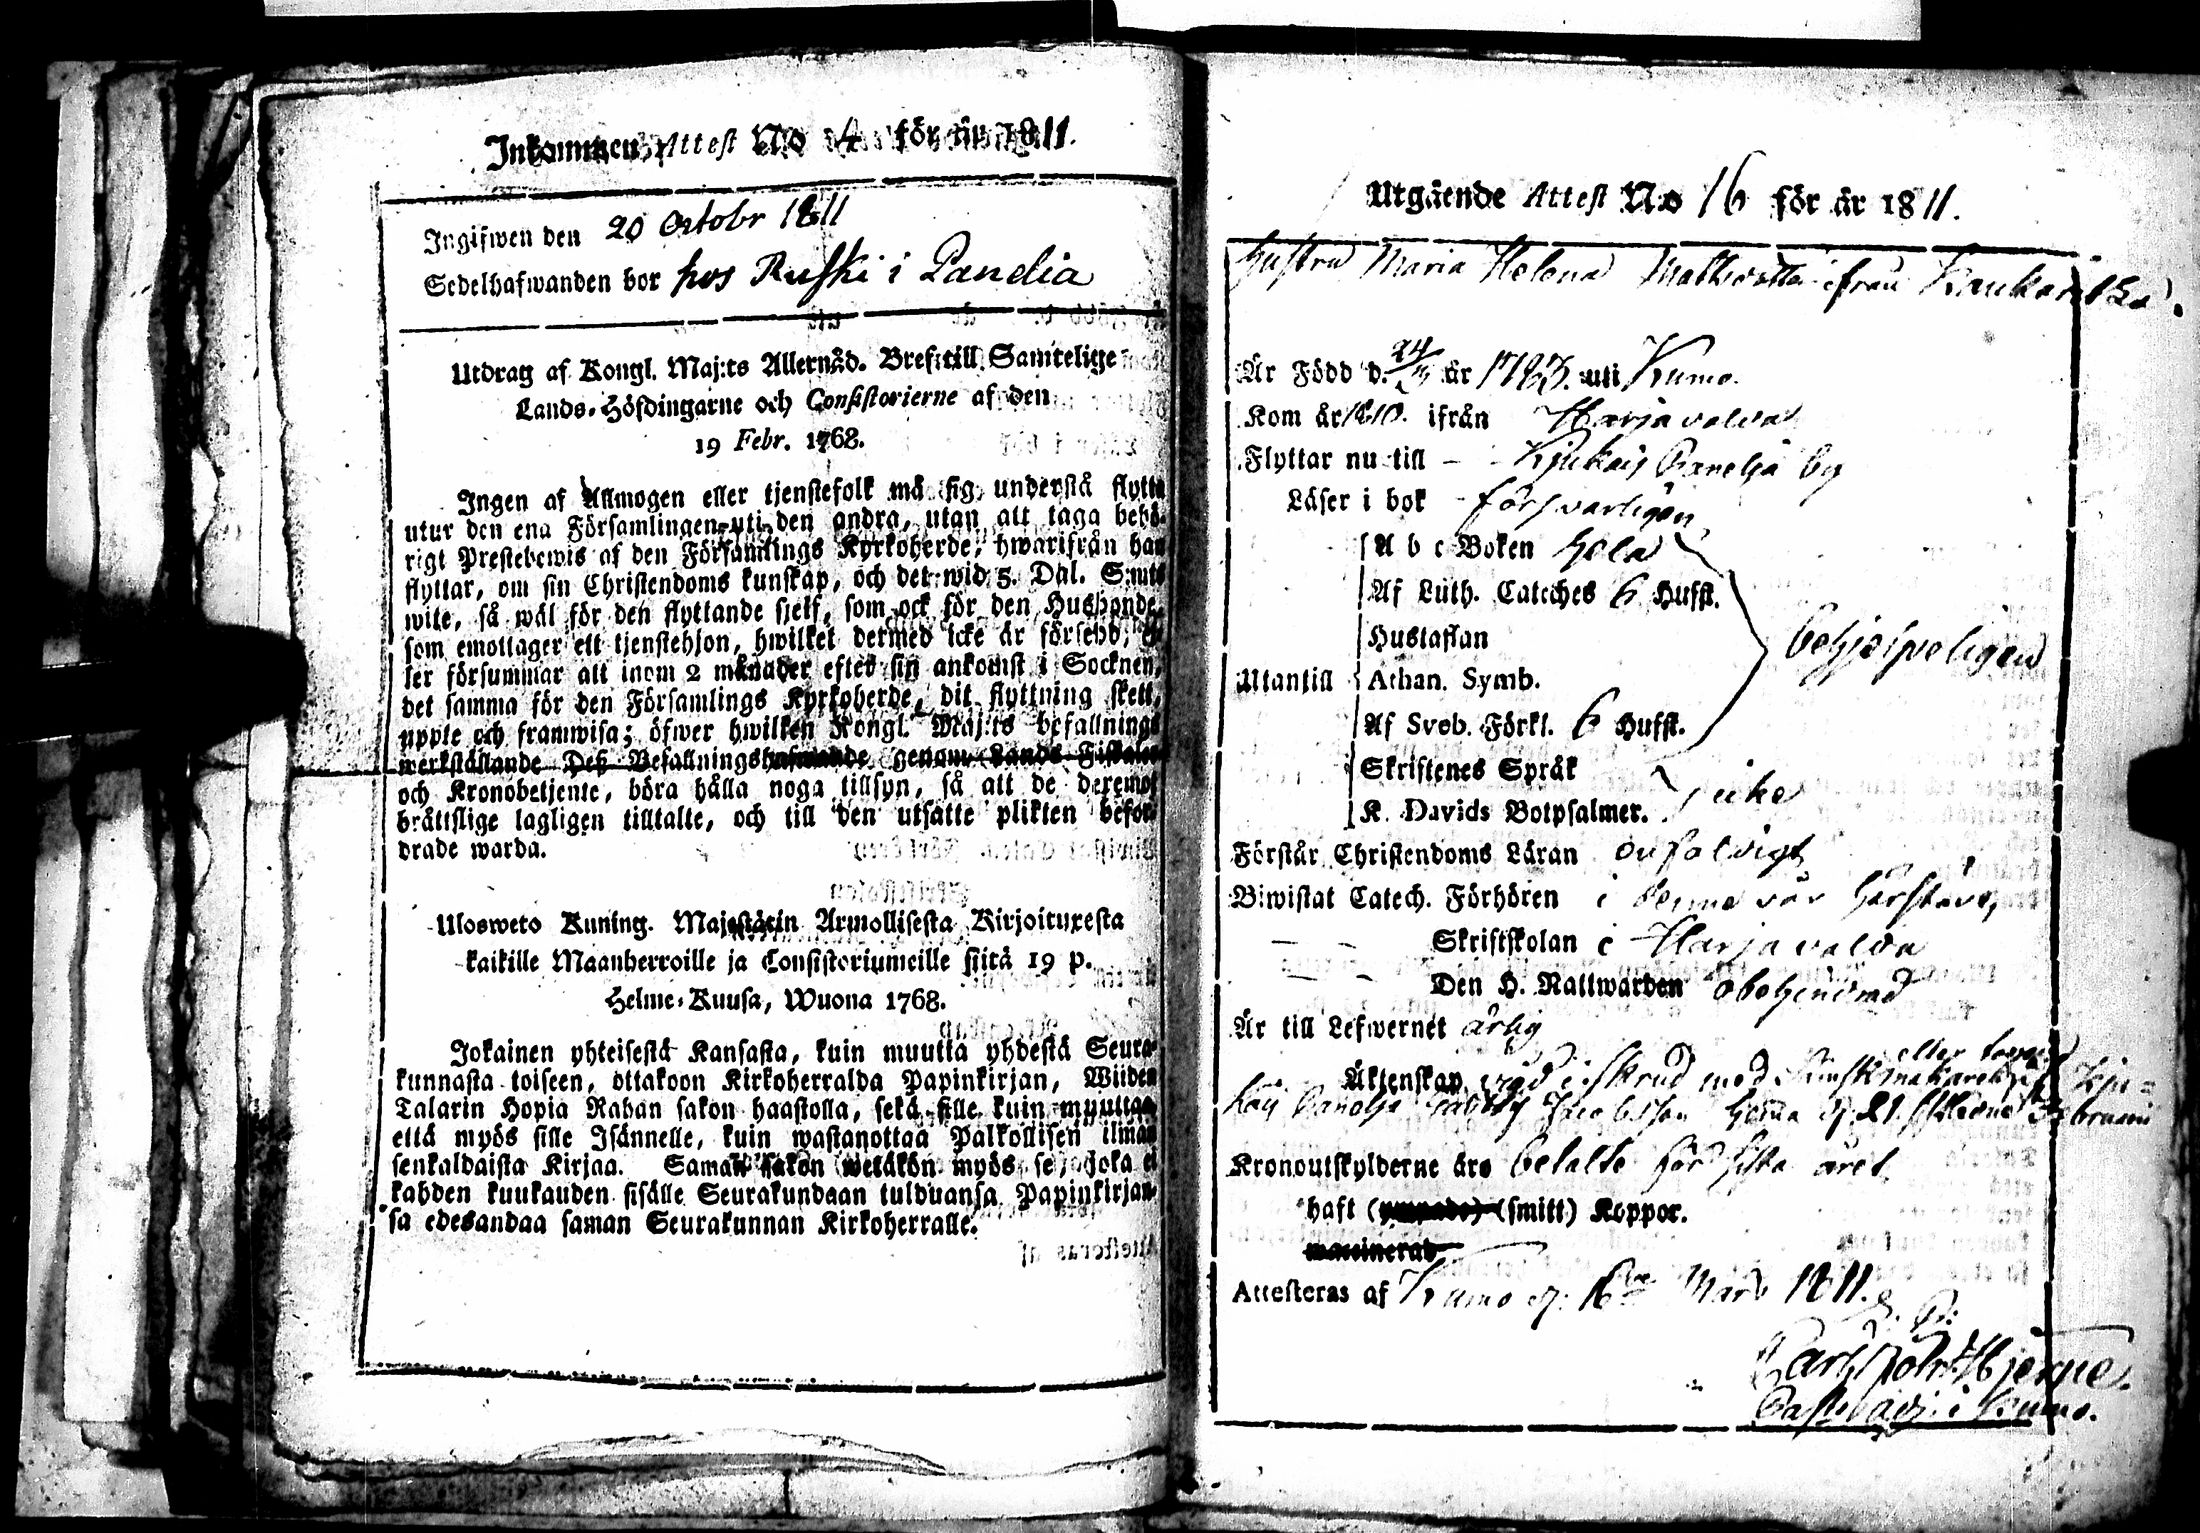 Inkommen Attest No 4 för år 1811.
Ingifwen den 20 Octobr 1811
Sedelhafwanden bor hos Ruski i Panelia
Utdrag af Kongl. Maj:ts Allernåd. Bref till Samtelige
Lands-Höfdingarne och Consistorierne af den
19 Febr. 1768.
Ingen af Allmogen eller tjenstefolk må sig understå flytta
utur den ena Församlingen uti den andra, utan att taga behö-
rigt Prestebewis af den Församlings Kyrkoherde, hwarifrån han
flyttar, om sin Christendoms kunskap, och det wid 5. Dal. S:mts
wite, så wäl för den flyttande sjelf, som ock för den Husbonde,
som emottager ett tjenstehjon, hwilket dermed icke är försedd, el-
ler försummar att inom 2 månader efter sin ankomst i Socknen,
det samma för den Församlings Kyrkoherde, dit flyttning skett,
uppte och framwisa; öfwer hwilken Kongl. Maj:ts befallnings
werkställande Deß Befallningshafwande genom Lands Fiskaler
och Kronobetjente, böra hålla noga tillsyn, så att de deremot
bråttslige lagligen tilltalte, och till den utsatte plikten befor-
drade warda.
Ulosweto Kuning. Majestätin Armollisesta Kirjoituxesta
kaikille Maanherroille ja Consistoriumeille siitä 19 p.
Helme-Kuusa, Wuona 1768.
Jokainen yhteisestä Kansasta, kuin muutta yhdestä Seura-
kunnasta toiseen, ottakoon Kirkoherralda Papinkirjan, Wiiden
Talarin Hopia Rahan sakon haastolla, sekä sille kuin muuttaa,
että myös sille Isännelle, kuin wastanottaa Palkollisen ilman
senkaldaista Kirjaa. Saman sakon wetäkön myös se, joka ei
kahden kuukauden sisälle Seurakundaan tulduansa Papinkirjan-
sa edesandaa saman Seurakunnan Kirkoherralle.
Utgående Attest No 16 för år 1811.
Hustru Maria Helena Mathsdotter ifrån
Är Född d. 24 år 1783. uti Kumo.
Kom år 1810. ifrån Harjavalda
Flyttar nu till - Kjukais Panelja by
Läser i bok försvarligen
A b c Boken hela
Af Luth. Cateches 6 Hufst.
Hustaflan
behjelpeligen
Utantill Athan. Symb.
Af Sveb. Förkl. 6 Hufst.
Skriftenes Språk
K. Davids Botpsalmer. icke
Förstår Christendoms Läran enfaldigt
Biwistat Catech. Förhören i denne vår
Skriftskolan i Harjavalda
Den H. Nattwarden obehindrad
Är till Lefwernet ärlig
eller
Äktenskap med
Panelja 21.
Kronoutskylderne äro betalte för sista året.
haft (ympade) (smitt) Koppor.
waccinerad
Attesteras af Kumo d. 16 Mars 1811.
Carl Hjerne.
i Kumo.